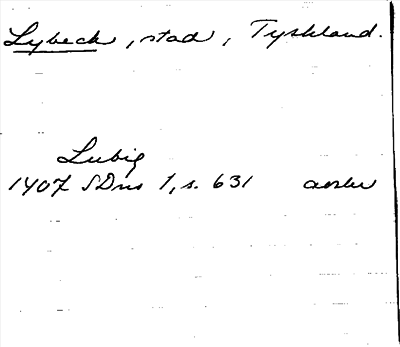 Lybeck, stad, Tyskland.
Lubig
1407 SDns 1, s. 631 avskr